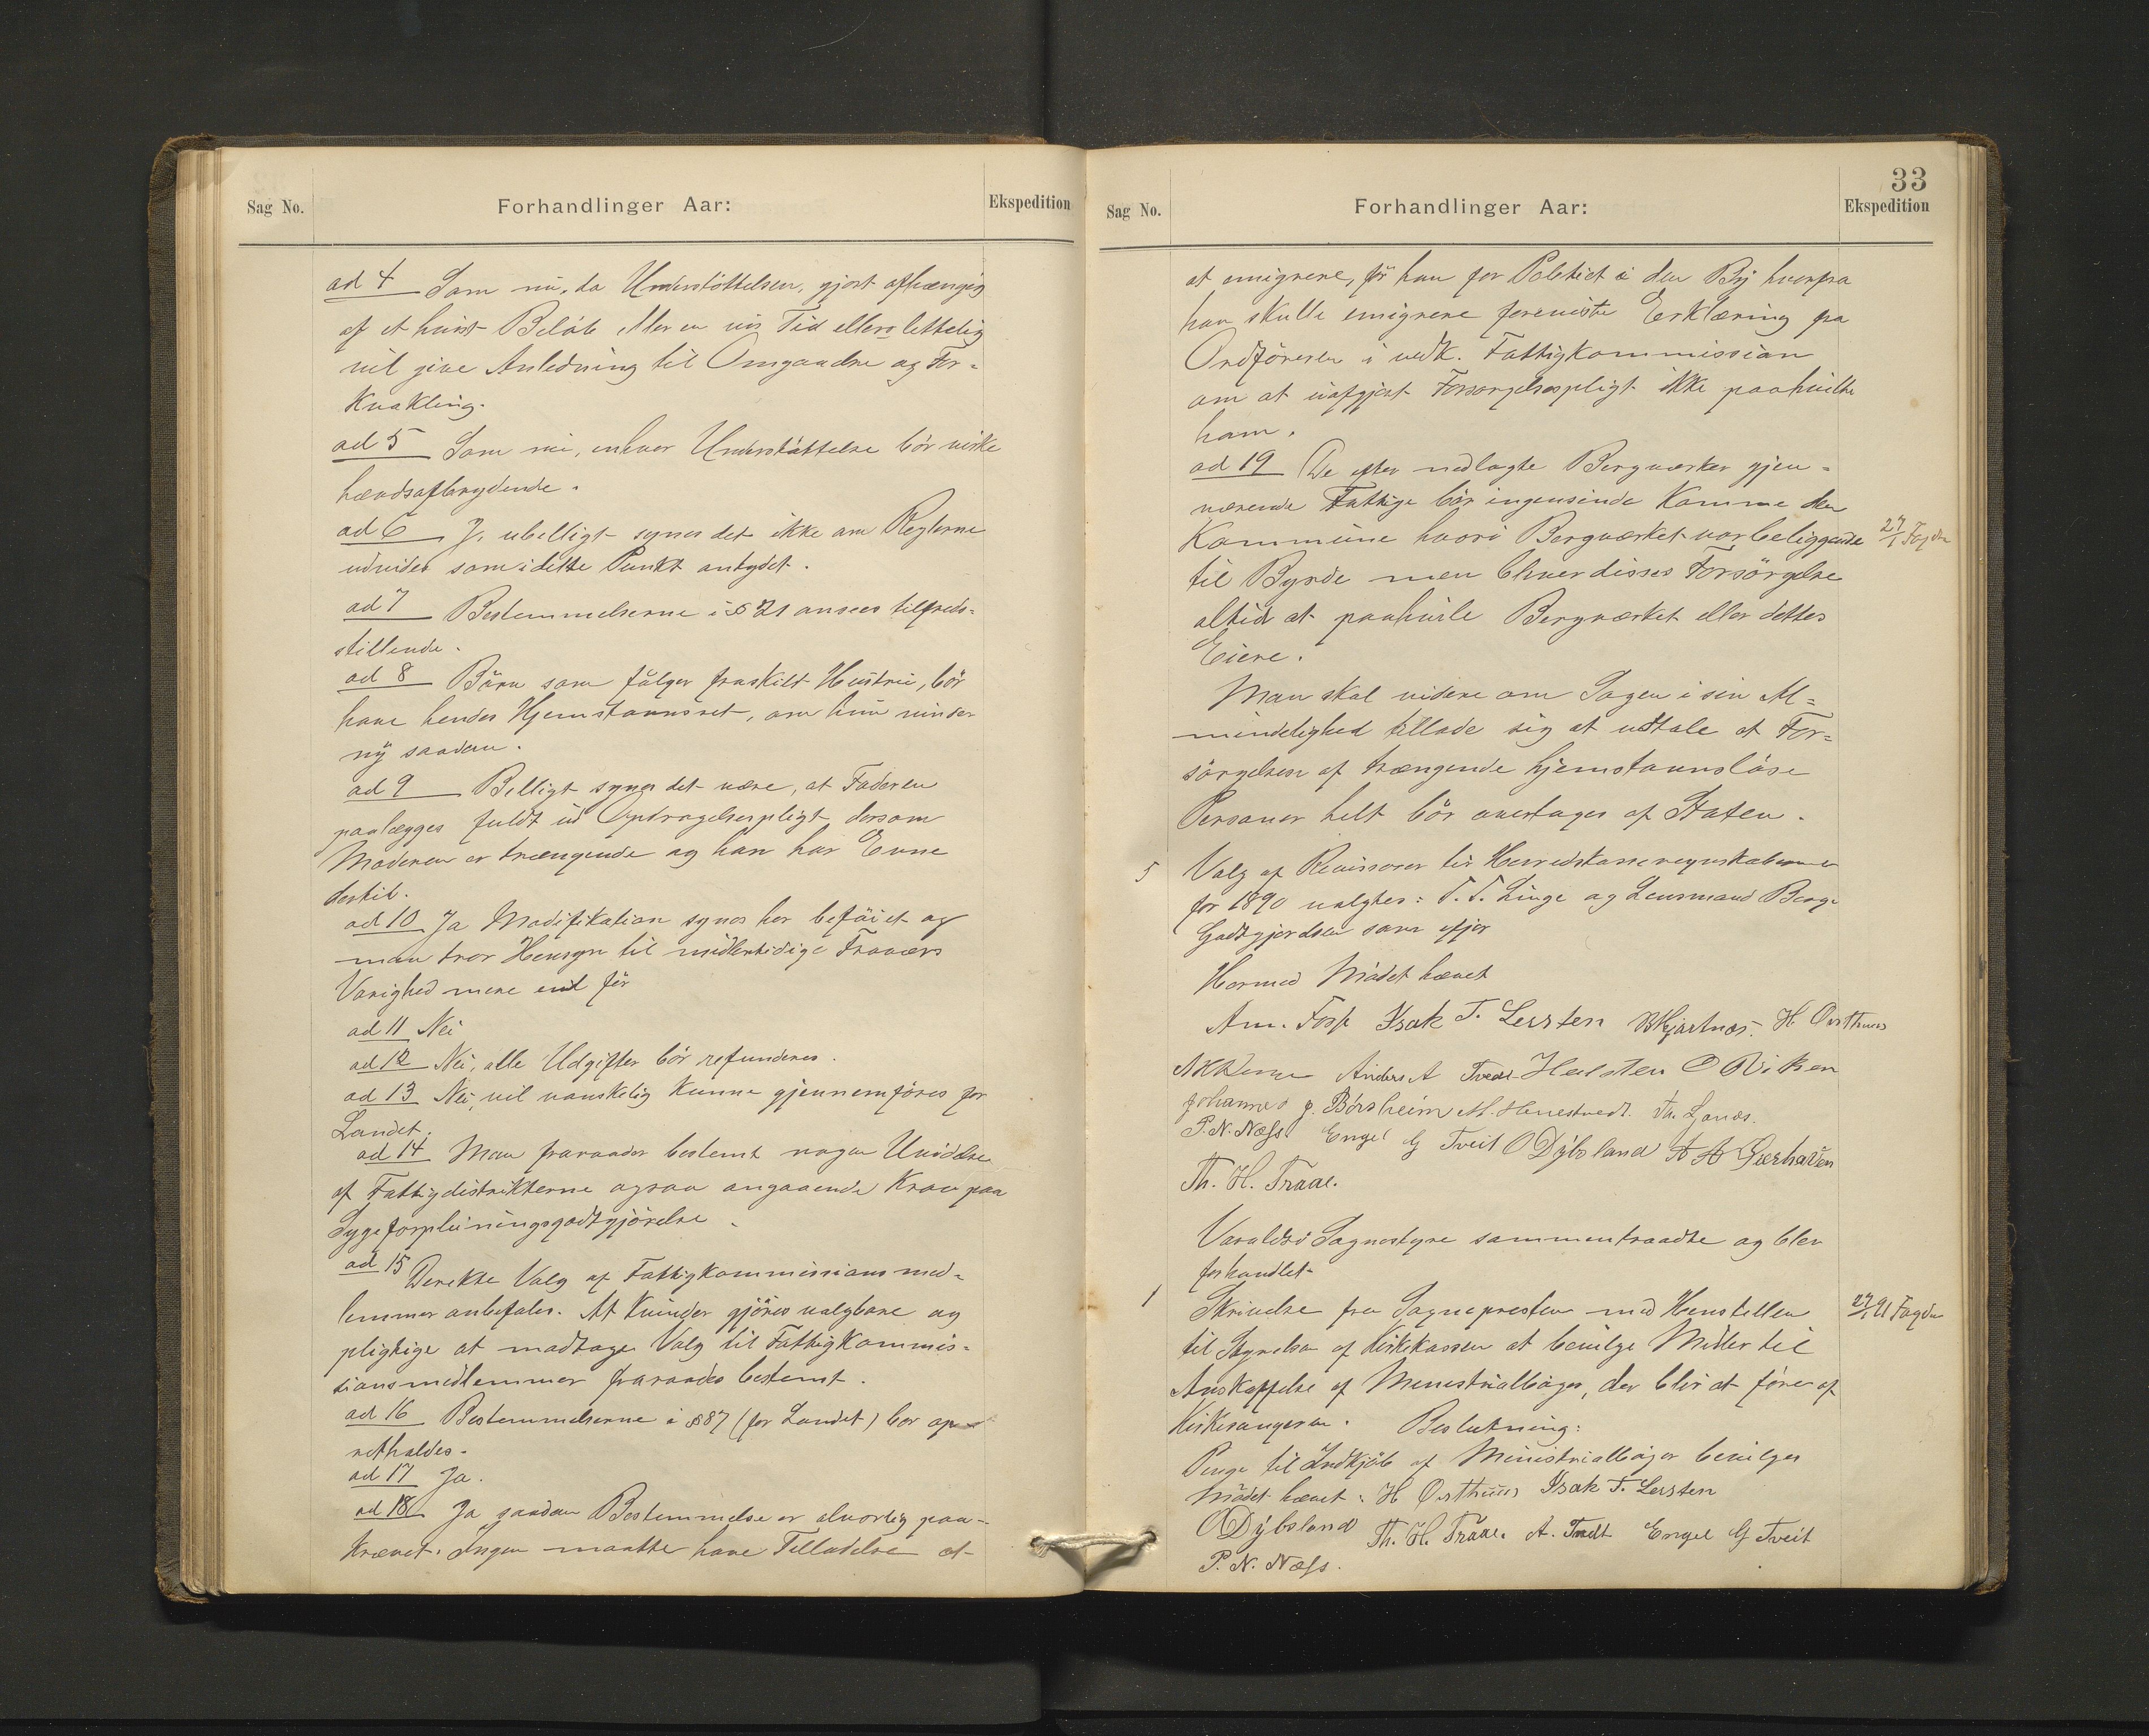 Sag No. Forhandlinger Aar: Ekspedition
ad 4 Som nu, da Understöttelsen, gjort afhængig
af et hvist Belöb eller en vis Tid ellers lettelig
vil give Anledning til Omgaaelse og For-
Kvakling.
ad 5 Som nu, enhver Understöttelse bör virke
hævdsafbrydende.
ad 6 J, ubelligt synes det ikke om Reglerne
udvides som i dette Punkt antydet.
ad 7 Bestemmelserne i § 21 ansees tilfreds-
stillende.
ad 8 Börn som fölger fraskilt Hustru, bör
have hendes Hjemstavnsret, om hun vinder
ny saadan.
ad 9 Billigt synes det være, at Faderen
paalægges fuldt ud Opdragelsespligt dersom
Moderen er trængende og han har Evne
dertil.
ad 10 Ja Modifikation synes her beföiet og
man tror Hensyn til midlertidige Fraværs
Varighed mere end för
ad 11 Nei
ad 12 Nei, alle Udgifter bör refunderes.
ad 13 Nei, vil vanskelig kunne gjennemföres for
Landet.
ad 14 Man fraraader bestemt nogen Uvidelse
af Fattigdistrikterne ogsaa angaaende Krav paa
Sygeforpleiningsgodtgjörelse.
ad 15 Derekte Valg af Fattigkommissions med-
lemmer anbefales. At Kvinder gjöres valgbare og
pligtige at modtage Valg til Fattigkommis-
sionsmedlemmer fraraades bestemt.
ad 16 Bestemmelserne i § 87 (for Landet) bør op-
retholdes.
ad 17 Ja.
ad 18 Ja saadan Bestemmelse er alvorlig paa-
krævet. Ingen maatte have Tilladelse at
33
Sag No. Forhandlinger Aar: Ekspedition
at emigrere, för han for Politiet i den By hvorfra
han skulle emigrere foreviste Erklæring fra
Ordföreren i vedk. Fattigkommission
om at uafgjort Forsörgelsespligt ikke paahvilte
ham.
ad 19 De efter nedlagte Bergværker gjen-
værende Fattige bör ingensinde komme den
Kommune hvori Bergværket var beliggende
27/1
til Byrde men bliver disses Forsörgelse
altid at paahvile Bergværket eller dettes
Eiere.
Man skal videre om Sagen i sin Al-
mindelighed tillade sig at udtale at For-
sörgelsen af trængende hjemstavnslöse
Personer helt bör overtages af Staten.
5 Valg af Revisorer til Herredskasseregnskaberne
for 1890 valgtes: T. T. Linge og Lensmand Berge
Godtgjørelsen som ifjor
Hermed Mödet hævet
Am. Isak T. Lersten H. Østhuus
Anders A Tvedt O Viken
Johannes J. Börsheim Th. Sanæs.
P. N. Næss. Engel G Tveit O Dybsland
Th. H. Traae.
Varaldsö Sognestyre sammentraadte og blev
forhandlet
1 Skrivelse fra Sognepresten med Henstillen
til Styrelsen af Kirkekassen at bevilge Midler til
Anskaffelse af Menestrialböger, der blir at före af
Kirkesangeren. Beslutning:
Penge til Indkjöb af Ministrialböger bevilges
Mödet hævet: H Østhuus Isak T. Lersten
O Dybsland Th. H. Traae. A. Tvedt Engel G Tveit
P. N. Næss.